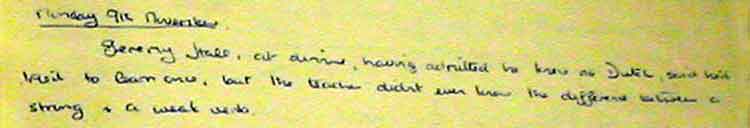 Monday 9th November.
Jeremy Hall, at dinner, having admitted he knew no Dutch, said he'd
tried to learn once, but the teacher didn't even know the difference between a
strong & a weak verb.